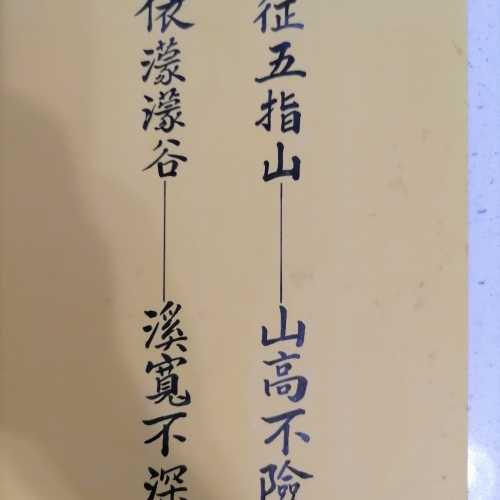 征五指山——山高不險
依濛濛谷——溪寬不深